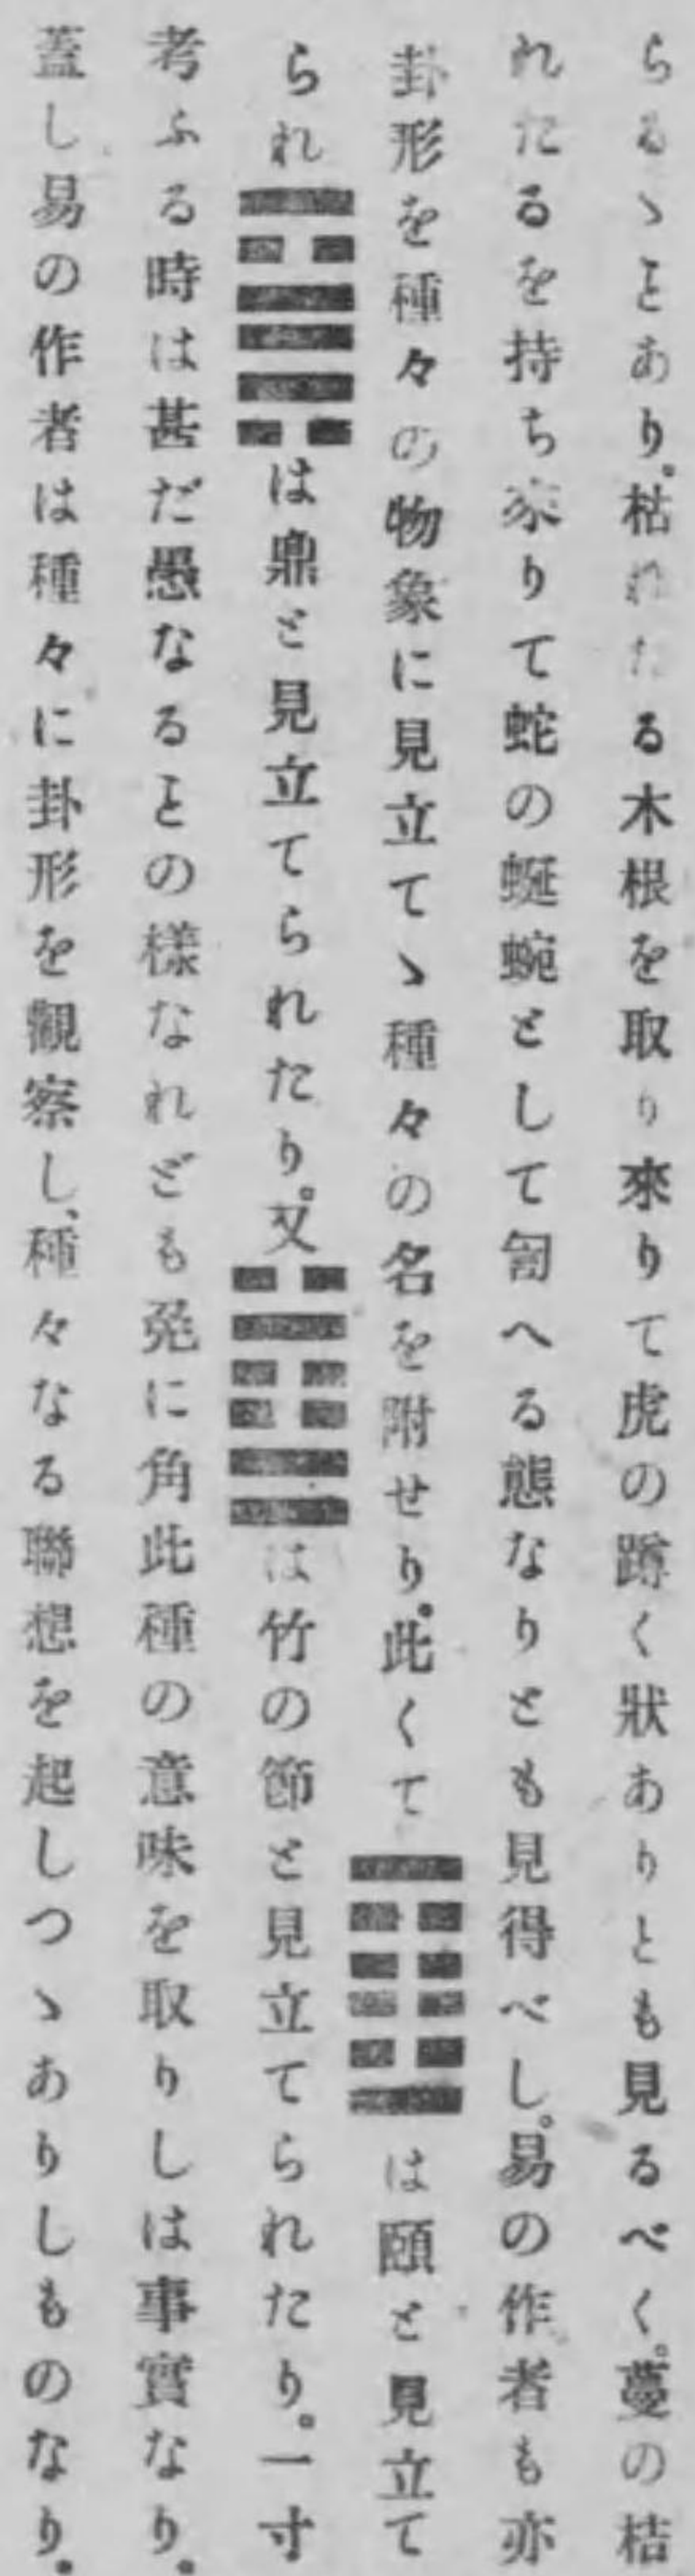 らるゝとあり。枯れたる木根を取り來りて虎の蹲く狀ありとも見るべく。蔓の枯
れたるを持ち來りて蛇の蜒蜿として匐へる態なりとも見得べし。易の作者も亦
卦形を種々の物象に見立てゝ種々の名を附せり。此くて䷚は頤と見立て
られ䷱は鼎と見立てられたり。又䷻は竹の節と見立てられたり。一寸
考ふる時は甚だ愚なることの樣なれども兎に角此種の意味を取りしは事實なり。
蓋し易の作者は種々に卦形を觀察し、種々なる聯想を起しつゝありしものなり。